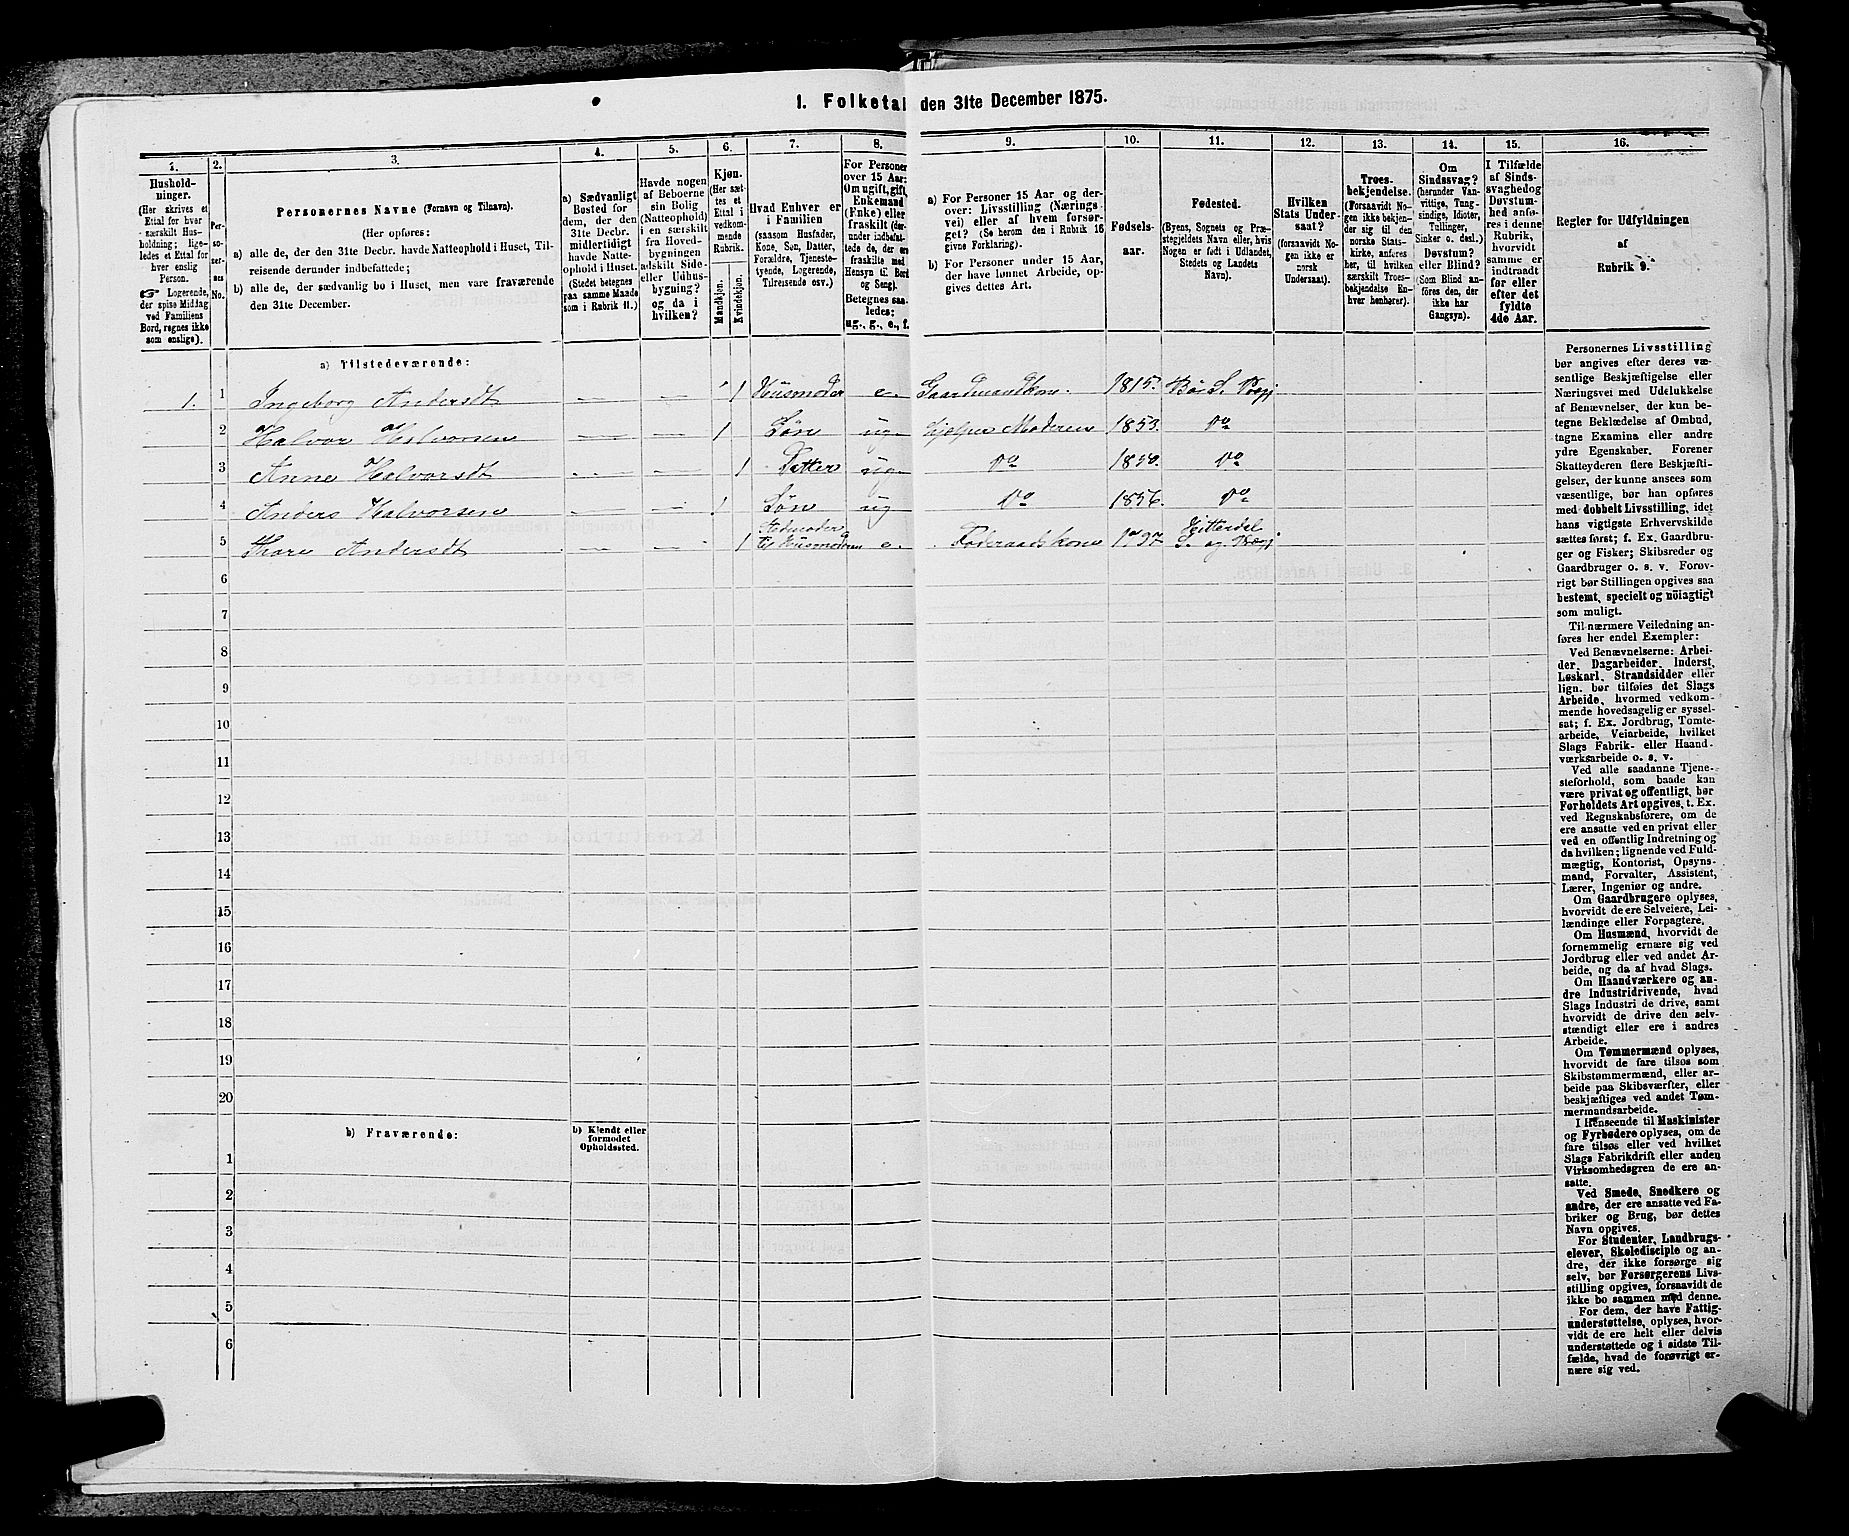 1. Folketal den 31te December 1875.
1. 2. 3. 4. 5. 6. 7. 8. 9. 10. 11. 12. 13. 14. 15. 16.
Husholdninger.
(Her skrives et
Ettal for hver
særskilt Husholdning;
ligeledes et Ettal for
hver enslig
Person.
☞ Logerende,
der spise Middag
ved Familiens
Bord, regnes ikke
som enslige).
Personernes No.
Personernes Navne (Fornavn og Tilnavn).
(Her opføres:
a) alle de, der den 31te Decbr. havde Natteophold i Huset, Tilreisende derunder indbefattede;
b) alle de, der sædvanlig bo i Huset, men vare fraværende
den 31te December.
a) Sædvanligt
Bosted for
dem, der den
31te Decbr.
midlertidigt
havde Natteophold i Huset.
(Stedet betegnes
paa samme Maade
som i Rubrik 11.)
Havde nogen
af Beboerne
sin Bolig
(Natteophold)
i en særskilt
fra Hovedbygningen
adskilt Side-
eller Udhusbygning?
og da i
hvilken?
Kjøn.
(Her sættes et
Ettal i
vedkommende
Rubrik.
Mandkjøn.
Kvindekjøn.
Hvad Enhver er
i Familien
(saasom Husfader,
Kone, Søn, Datter,
Forældre, Tjenestetyende, Logerende,
Tilreisende osv.)
For Personer
over 15 Aar:
Om ugift, gift,
Enkemand
(Enke) eller
fraskilt (derunder indbefattede de, der ere
fraskilte med
Hensyn til Bord
og Seng).
Betegnes saaledes:
ug., g., e., f.
a) For Personer 15 Aar og derover: Livsstilling (Næringsvei) eller af hvem forsørget? (Se herom den i Rubrik 16
givne Forklaring).
b) For Personer under 15 Aar,
der have lønnet Arbeide, opgives dettes Art.
Fødselsaar.
Fødested.
(Byens, Sognets og Præstegjeldets Navn eller, hvis
Nogen er født i Udlandet,
Stedets og Landets
Navn).
Hvilken
Stats Undersaat?
(forsaavidt Nogen ikke er
norsk
Undersaat).
Troesbekjendelse.
(Forsaavidt Nogen ikke bekjender sig til den
norske Statskirke, anføres
her, til hvilken
særskilt Troesbekjendelse Enhver henhører).
Om
Sindssvag?
(herunder Vanvittige, Tungsindige, Idioter,
Tullinger,
Sinker o. desl.)
Døvstum?
eller Blind?
(Som Blind anføres den, der
ikke har
Gangsyn).
I Tilfælde
af Sindssvaghed og
Døvstumhed anføres i denne
Rubrik,
hvorvidt
samme er
indtraadt
før eller
efter det
fyldte
4de Aar.
Regler for Udfyldningen
af
Rubrik 9.
a) Tilstedeværende:
1. 1 Ingeborg Andersdt — — 1 Husmoder e. Gaardmandkone. 1815. Bø S. Prgj
2 Halvor Halvorsen — — 1 Søn ug Hjelper Moderen 1853. Do
3 Anne Halvorsdt — — 1 Datter ug Do 1850. Do
4 Anders Halvorsen — — 1 Søn ug Do 1856. Do
5 Thore Andersdt 1 til Husmoderen e. Føderaadskone 1797 Hitterdal S. og Prgj
6
7
8
9
10
11
12
13
14
15
16
17
18
19
20
b) Fraværende:
b) Kjendt eller
formodet
Opholdssted.
1
2
3
4
5
6
Personernes Livsstilling
bør angives efter deres væsentlige Beskjæftigelse eller
Næringsvei med Udelukkelse
af Benævnelser, der kun betegne Beklædelse af Ombud,
tagne Examina eller andre
ydre Egenskaber. Forener
Skatteyderen flere Beskjæftigelser, der kunne ansees som
væsentlige, bør han opføres
med dobbelt Livsstilling, idet
hans vigtigste Erhvervskilde
sættes først; f. Ex. Gaardbruger og Fisker; Skibsreder og
Gaardbruger o. s. v. Forøvrigt bør Stillingen opgives saa
bestemt, specielt og nøiagtigt
som muligt.
Til nærmere Veiledning anføres her endel Exempler:
Ved Benævnelserne: Arbeider, Dagarbeider, Inderst,
Løskarl, Strandsidder eller
lign. bør tilføies det Slags
Arbeide, hvormed vedkommende hovedsagelig er sysselsat; f. Ex. Jordbrug, Tomtearbeide, Veiarbeide, hvilket
Slags Fabrik- eller Haandværksarbeide o. s. v.
Ved alle saadanne Tjenesteforhold, som baade kan
være privat og offentligt, bør
Forholdets Art opgives, t. Ex.
ved Regnskabsførere, om de
ere ansatte ved en privat eller
ved en offentlig Indretning og
da hvilken; lignende ved Fuldmægtig, Kontorist, Opsynsmand, Forvalter, Assistent,
Lærer, Ingeniør og andre.
Om Gaardbrugere oplyses,
hvorvidt de ere Selveiere, Leilændinge eller Forpagtere.
Om Husmænd, hvorvidt de
fornemmelig ernære sig ved
Jordbrug eller ved andet Arbeide, og da af hvad Slags.
Om Haandværkere og andre Industridrivende, hvad
Slags Industri de drive, samt
hvorvidt de drive den selvstændigt eller ere i andres
Arbeide.
Om Tømmermænd oplyses,
hvorvidt de fare tilsøs som
Skibstømmermænd, eller arbeide paa Skibsværfter, eller
beskjæftiges ved andet Tømmermandsarbeide.
I Henseende til Maskinister
og Fyrbødere oplyses, om de
fare tilsøs eller ved hvilket
Slags Fabrikdrift eller anden
Virksomhedsgren de ere ansatte.
Ved Smede, Snedkere og
andre, der ere ansatte ved Fabriker og Brug, bør dettes
Navn opgives.
For Studenter, Landbrugselever, Skoledisciple og andre, der ikke forsørge sig
selv, bør Forsørgerens Livsstilling opgives, forsaavidt de
ikke bo sammen med denne.
For dem, der have Fattigunderstøttelse, oplyses, hvorvidt de ere helt eller delvis
understøttede og i sidste Tilfælde, hvad de forøvrigt ernære sig ved.